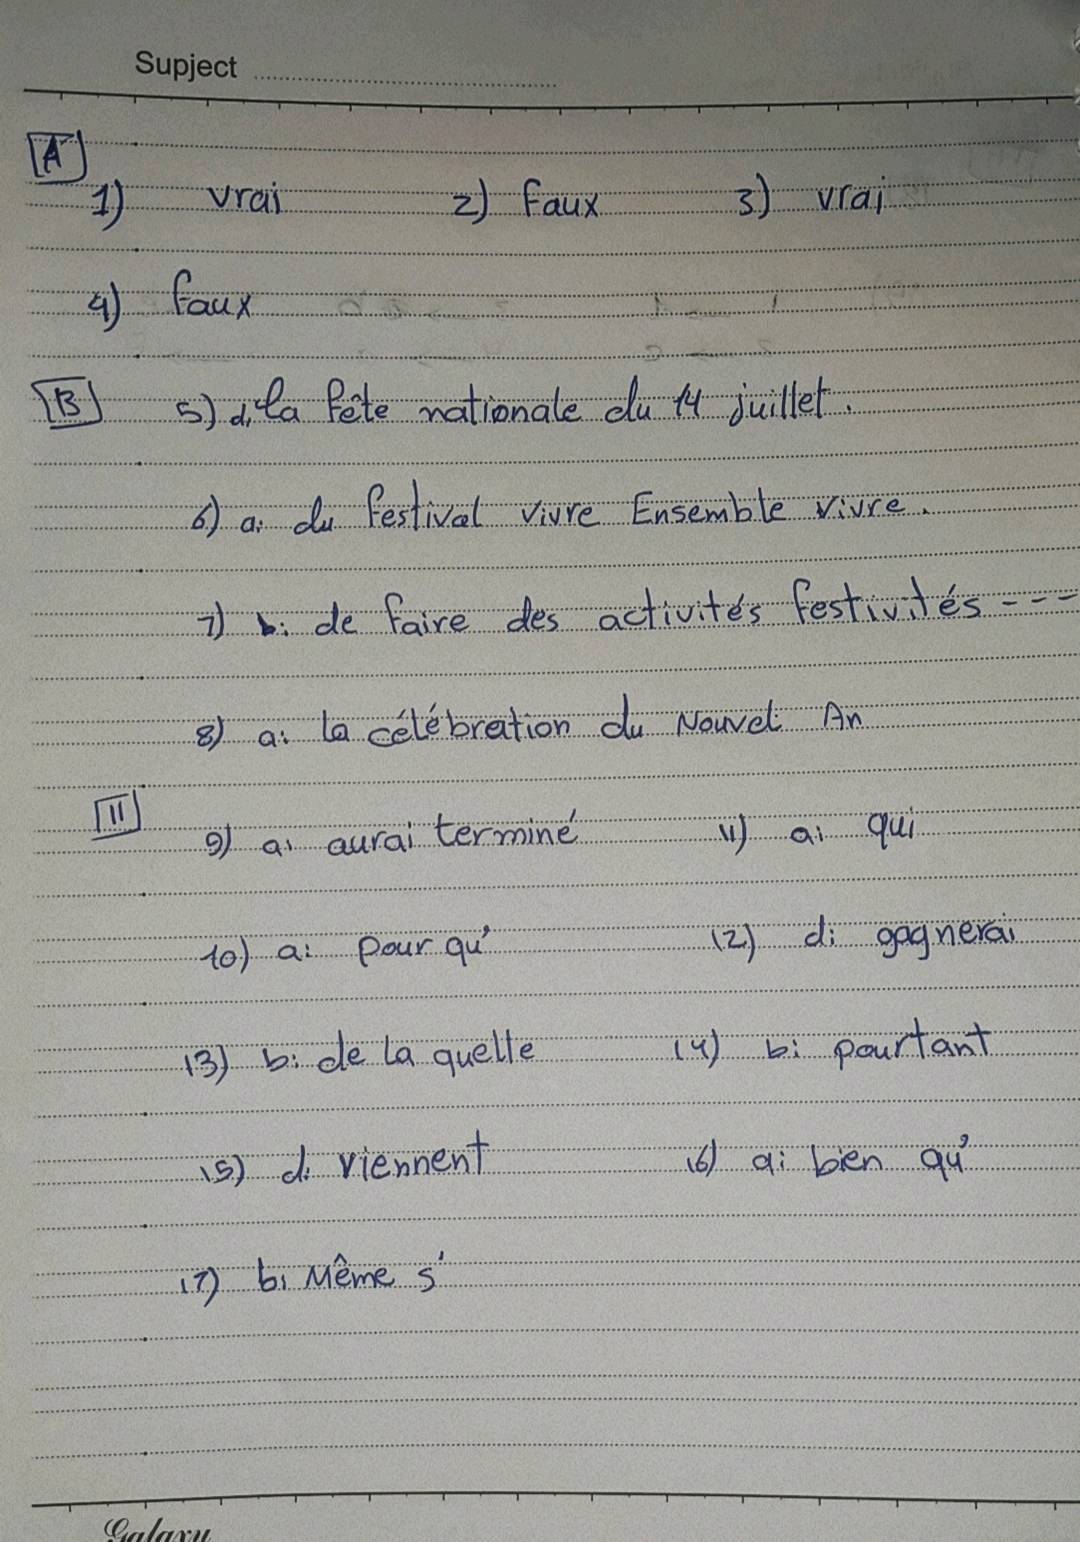 Supject
A
1) vrai 2) Faux 3) vrai
4) faux
B 5) d. la fête nationale du 14 juillet.
6) a: du festival vivre Ensemble vivre.
7) b: de faire des activités festivités ---
8) a: la célébration du Nouvel An
II
9) a: aurai terminé 11) a: qui
10) a: pour qu' 12) d: gagnerai
13) b: de la quelle 14) b: pourtant
15) d: viennent 16) a: bien qu'
17) b: Même s'
Galaxy